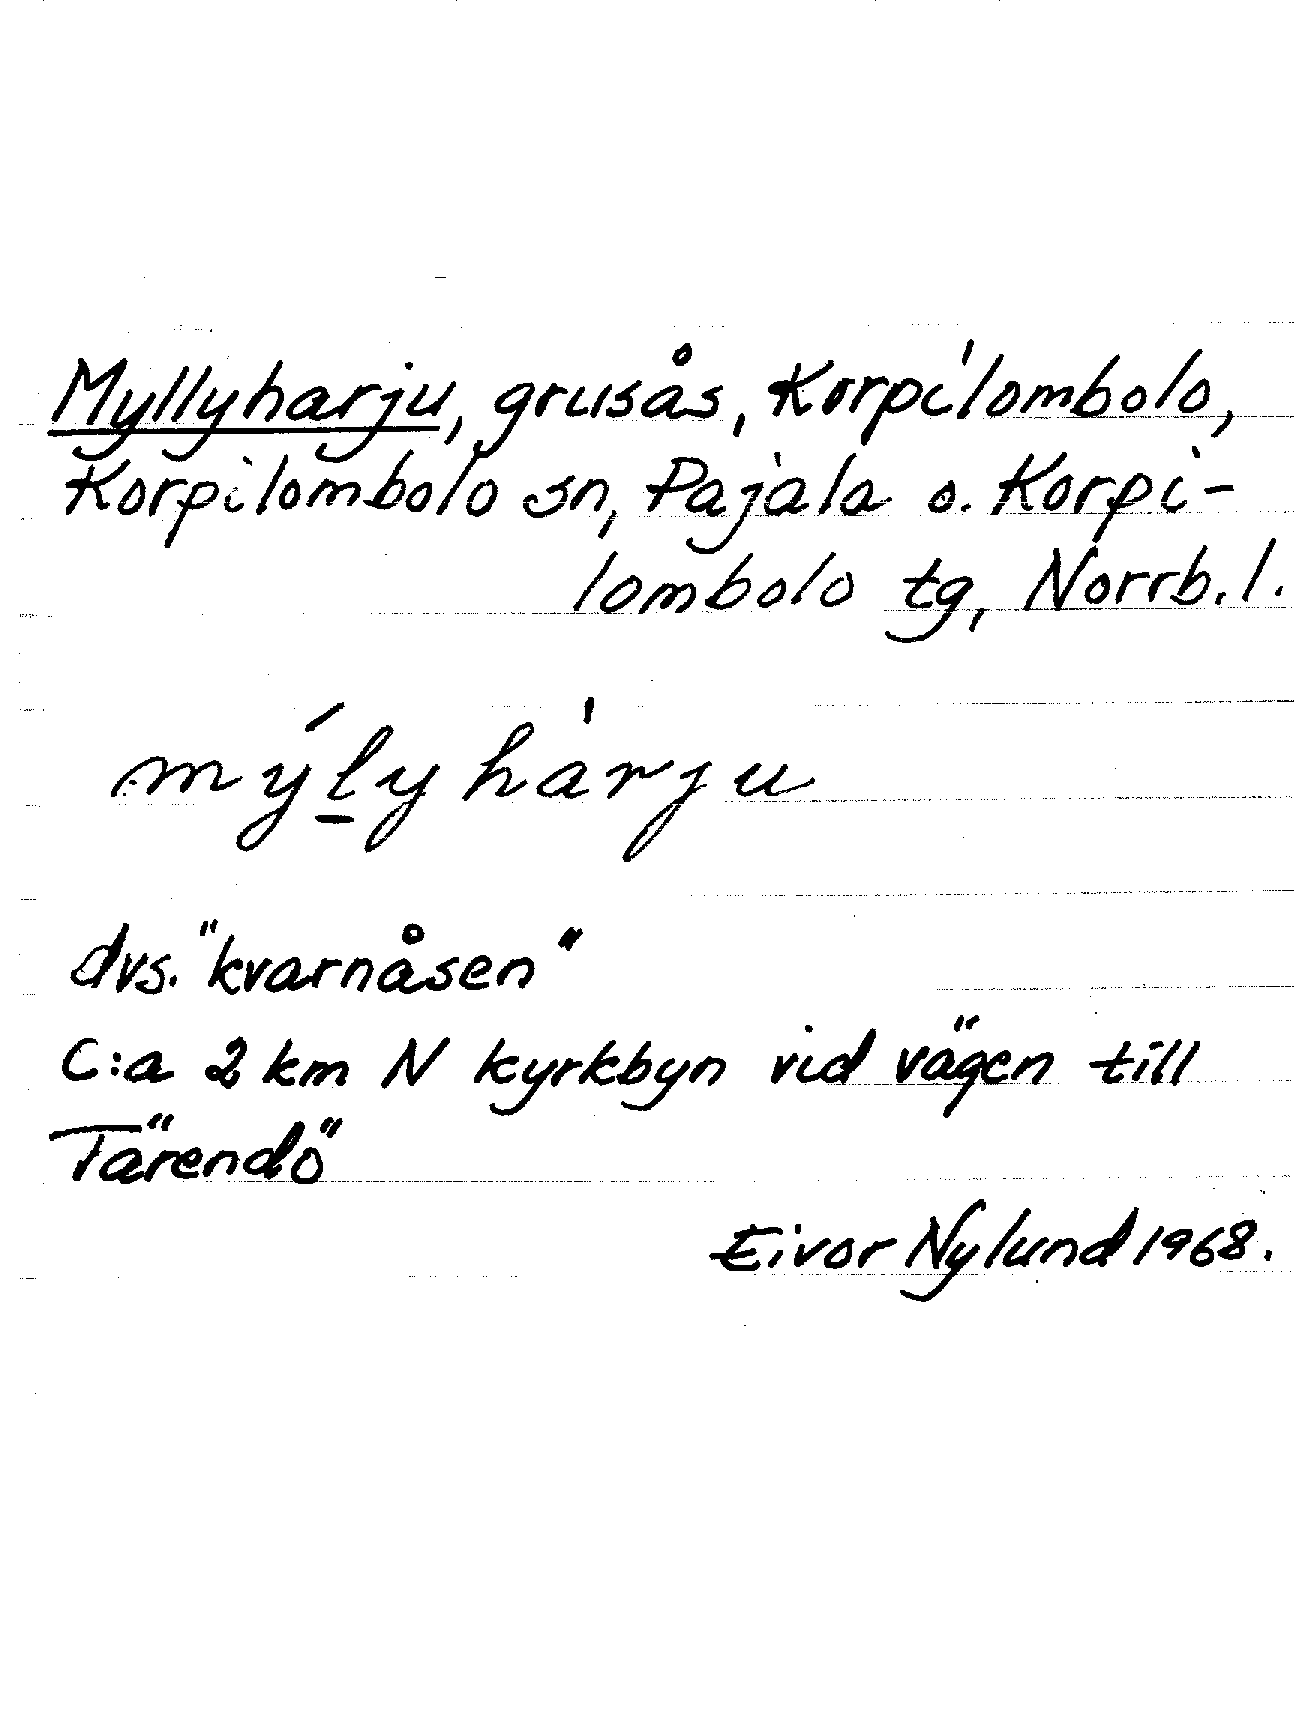 Myllyharju, grusås, Korpilombolo,
Korpilombolo sn, Pajala o. Korpi-
lombolo tg, Norrb. l.
mýl̲yhàrju
dvs. "kvarnåsen"
C:a 2 km N kyrkbyn vid vägen till
Tärendö
Eivor Nylund 1968.